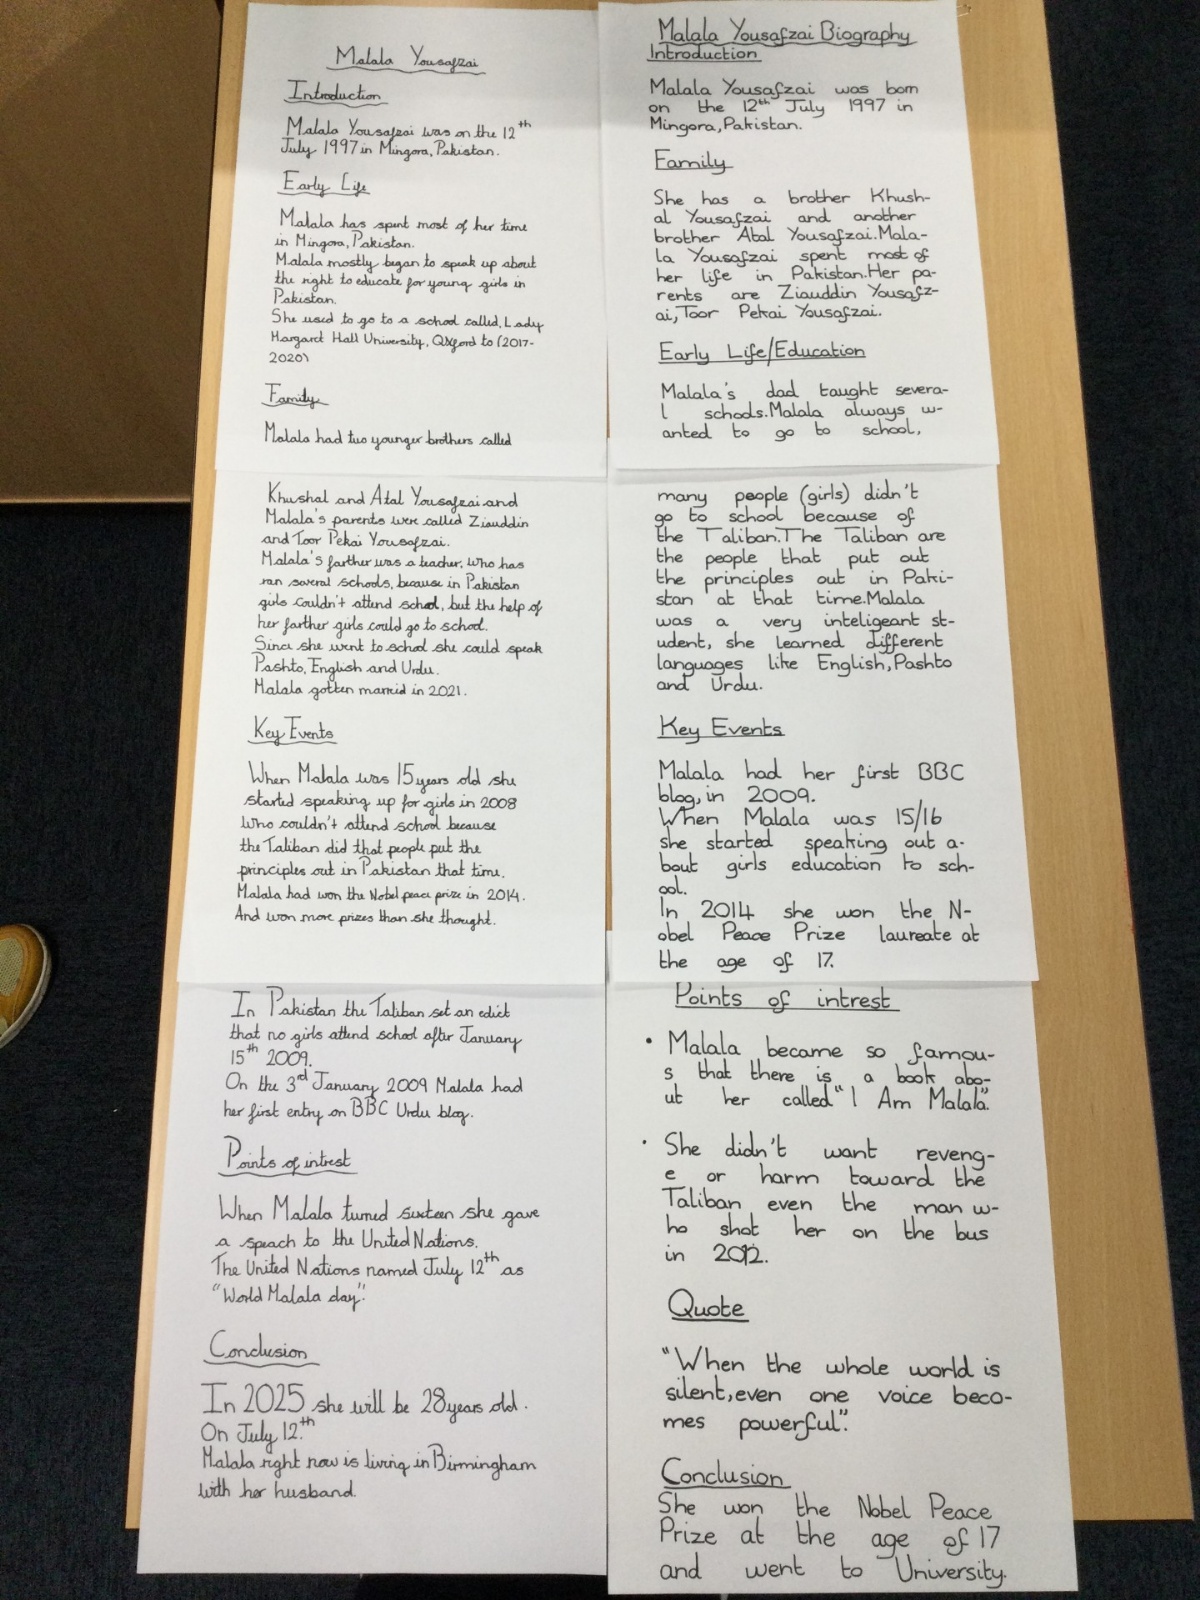 Malala Yousafzai
Introduction
Malala Yousafzai was on the 12th
July 1997 in Mingora, Pakistan.
Early Life
Malala has spent most of her time
in Mingora, Pakistan.
Malala mostly began to speak up about
the right to educate for young girls in
Pakistan.
She used to go to a school called, Lady
Margaret Hall University, Oxford to (2017-
2020)
Family
Malala had two younger brothers called
Khushal and Atal Yousafzai and
Malala's parents were called Ziauddin
and Toor Pekai Yousafzai.
Malala's farther was a teacher, who has
ran several schools, because in Pakistan
girls couldn't attend school, but the help of
her farther girls could go to school.
Since she went to school she could speak
Pashto, English and Urdu.
Malala gotten married in 2021.
Key Events
When Malala was 15 years old she
started speaking up for girls in 2008
who couldn't attend school because
the Taliban did that people put the
principles out in Pakistan that time.
Malala had won the Nobel peace prize in 2014.
And won more prizes than she thought.
In Pakistan the Taliban set an edict
that no girls attend school after January
15th 2009.
On the 3rd January 2009 Malala had
her first entry on BBC Urdu blog.
Points of intrest
When Malala turned sixteen she gave
a speach to the United Nations.
The United Nations named July 12th as
"World Malala day".
Conclusion
In 2025 she will be 28 years old.
On July 12th.
Malala right now is living in Birmingham
with her husband.
Malala Yousafzai Biography
Introduction
Malala Yousafzai was born
on the 12th July 1997 in
Mingora, Pakistan.
Family
She has a brother Khush-
al Yousafzai and another
brother Atal Yousafzai. Mala-
la Yousafzai spent most of
her life in Pakistan. Her pa-
rents are Ziauddin Yousafz-
ai, Toor Pekai Yousafzai.
Early Life/Education
Malala's dad taught severa-
l schools. Malala always w-
anted to go to school,
many people (girls) didn't
go to school because of
the Taliban. The Taliban are
the people that put out
the principles out in Paki-
stan at that time. Malala
was a very inteligeant st-
udent, she learned different
languages like English, Pashto
and Urdu.
Key Events
Malala had her first BBC
blog, in 2009.
When Malala was 15/16
she started speaking out a-
bout girls education to sch-
ool.
In 2014 she won the N-
obel Peace Prize laureate at
the age of 17.
Points of intrest
• Malala became so famou-
s that there is a book abo-
ut her called "I Am Malala".
• She didn't want reveng-
e or harm toward the
Taliban even the man w-
ho shot her on the bus
in 2012.
Quote
"When the whole world is
silent, even one voice beco-
mes powerful".
Conclusion
She won the Nobel Peace
Prize at the age of 17
and went to University.